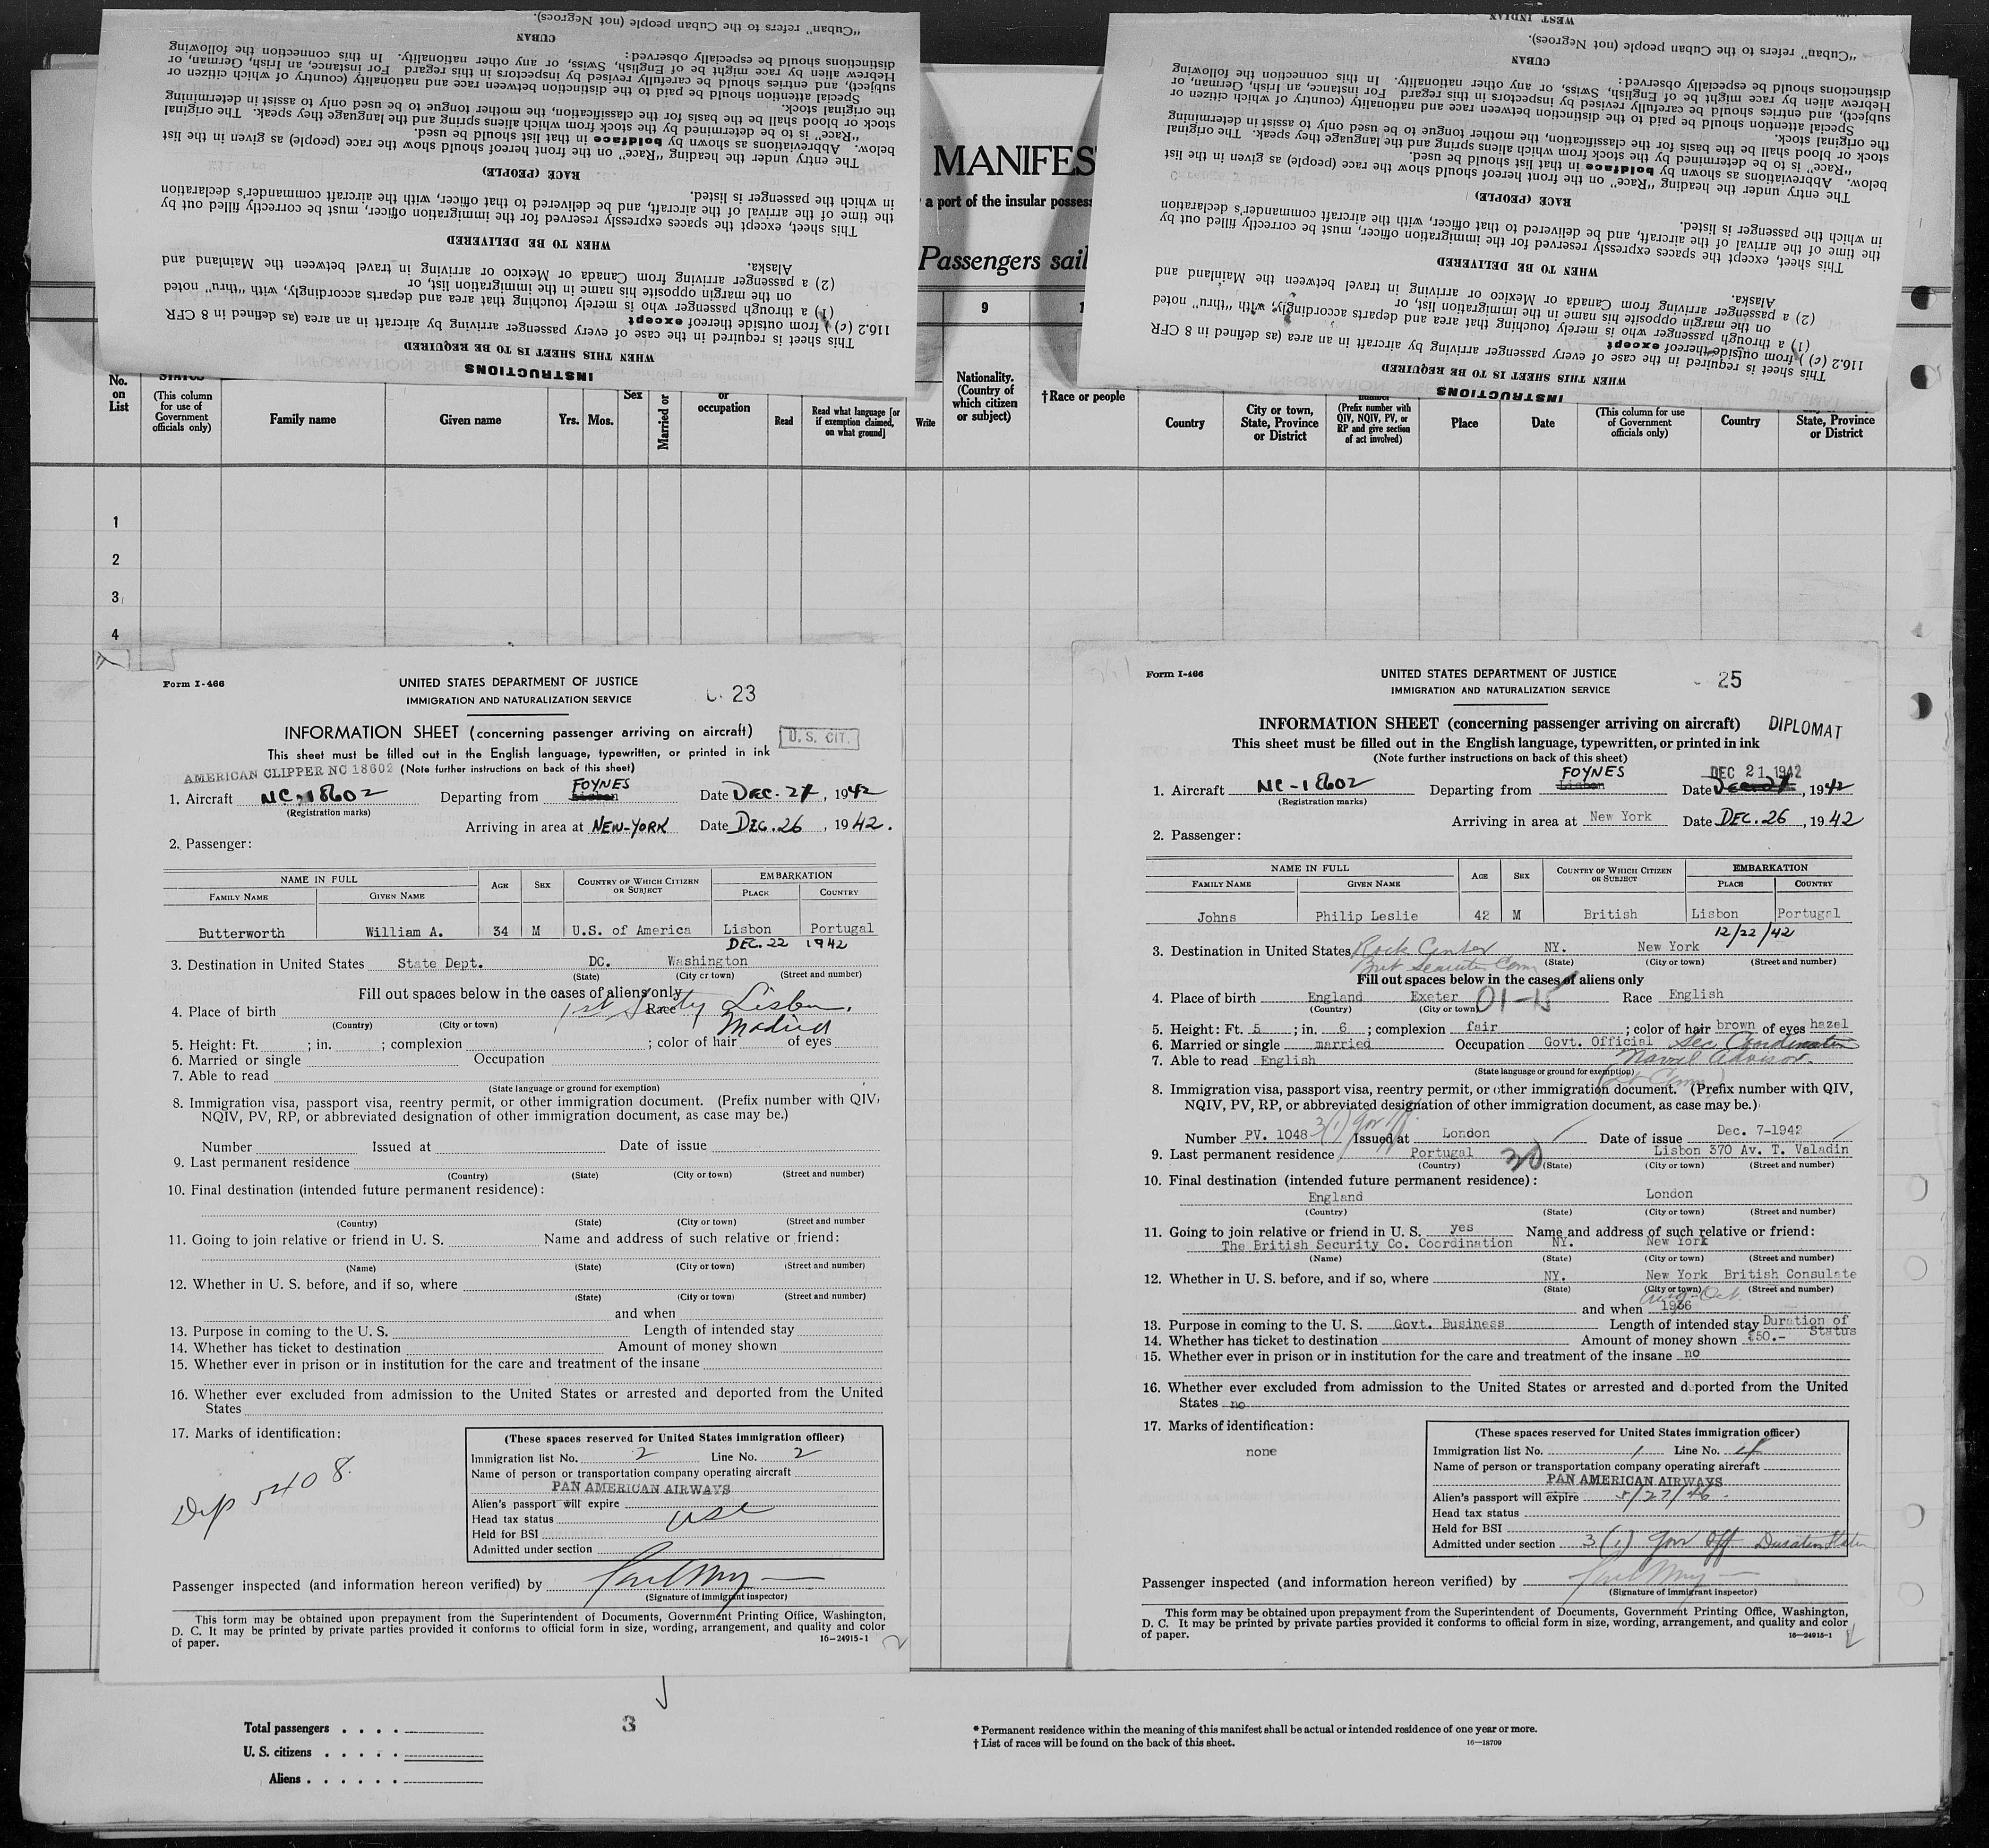 INSTRUCTIONS
WHEN THIS SHEET IS TO BE REQUIRED
This sheet is required in the case of every passenger arriving by aircraft in an area (as defined in 8 CFR
116.2 (c) ) from outside thereof except
(1) a through passenger who is merely touching that area and departs accordingly, with "thru" noted
on the margin opposite his name in the immigration list, or
(2) a passenger arriving from Canada or Mexico or arriving in travel between the Mainland and
Alaska.
WHEN TO BE DELIVERED
This sheet, except the spaces expressly reserved for the immigration officer, must be correctly filled out by
the time of the arrival of the aircraft, and be delivered to that officer, with the aircraft commander's declaration
in which the passenger is listed.
RACE (PEOPLE)
The entry under the heading "Race" on the front hereof should show the race (people) as given in the list
below. Abbreviations as shown by boldface in that list should be used.
"Race" is to be determined by the stock from which aliens spring and the language they speak. The original
stock or blood shall be the basis for the classification, the mother tongue to be used only to assist in determining
the original stock.
Special attention should be paid to the distinction between race and nationality (country of which citizen or
subject), and entries should be carefully revised by inspectors in this regard For instance, an Irish, German, or
Hebrew alien by race might be of English, Swiss, or any other nationality. In this connection the following
distinctions should be especially observed:
CUBAN
"Cuban" refers to the Cuban people (not Negroes).
INSTRUCTIONS
WHEN THIS SHEET IS TO BE REQUIRED
This sheet is required in the case of every passenger arriving by aircraft in an area (as defined in 8 CFR
116.2 (c) ) from outside thereof except
(1) a through passenger who is merely touching that area and departs accordingly, with "thru" noted
on the margin opposite his name in the immigration list, or
(2) a passenger arriving from Canada or Mexico or arriving in travel between the Mainland and
Alaska.
WHEN TO BE DELIVERED
This sheet, except the spaces expressly reserved for the immigration officer, must be correctly filled out by
the time of the arrival of the aircraft, and be delivered to that officer, with the aircraft commander's declaration
in which the passenger is listed.
RACE (PEOPLE)
The entry under the heading "Race" on the front hereof should show the race (people) as given in the list
below. Abbreviations as shown by boldface in that list should be used.
"Race" is to be determined by the stock from which aliens spring and the language they speak. The original
stock or blood shall be the basis for the classification, the mother tongue to be used only to assist in determining
the original stock.
Special attention should be paid to the distinction between race and nationality (country of which citizen or
subject), and entries should be carefully revised by inspectors in this regard For instance, an Irish, German, or
Hebrew alien by race might be of English, Swiss, or any other nationality. In this connection the following
distinctions should be especially observed:
CUBAN
"Cuban" refers to the Cuban people (not Negroes).
WEST INDIAN
MANIFES
a port of the insular possess
Passengers sail
9
No. on List
(This column for use of Government officials only)
Family name
Given name
Yrs. Mos.
Sex
Married or
or occupation
Read
Read what language [or if exemption claimed, on what ground]
Write
Nationality. (Country of which citizen or subject)
†Race or people
Country
City or town, State, Province or District
(Prefix number with QIV, NQIV, PV, or RP and give section of act involved)
Place
Date
(This column for use of Government officials only)
Country
State, Province or District
1
2
3
4
Form I-466
UNITED STATES DEPARTMENT OF JUSTICE
IMMIGRATION AND NATURALIZATION SERVICE
23
INFORMATION SHEET (concerning passenger arriving on aircraft)
U. S. CIT.
This sheet must be filled out in the English language, typewritten, or printed in ink
AMERICAN CLIPPER NC 18602 (Note further instructions on back of this sheet)
FOYNES
1. Aircraft NC-18602 Departing from Lisbon Date DEC. 21, 1942
(Registration marks)
Arriving in area at NEW-YORK Date DEC. 26, 1942.
2. Passenger:
NAME IN FULL AGE SEX COUNTRY OF WHICH CITIZEN OR SUBJECT EMBARKATION
FAMILY NAME GIVEN NAME PLACE COUNTRY
Butterworth William A. 34 M U.S. of America Lisbon Portugal
DEC. 22 1942
3. Destination in United States State Dept. DC. Washington
(State) (City or town) (Street and number)
Fill out spaces below in the cases of aliens only
4. Place of birth Race
1st Secty Lisbon,
Madrid
(Country) (City or town)
5. Height: Ft. ; in. ; complexion ; color of hair of eyes
6. Married or single Occupation
7. Able to read
(State language or ground for exemption)
8. Immigration visa, passport visa, reentry permit, or other immigration document. (Prefix number with QIV,
NQIV, PV, RP, or abbreviated designation of other immigration document, as case may be.)
Number Issued at Date of issue
9. Last permanent residence
(Country) (State) (City or town) (Street and number)
10. Final destination (intended future permanent residence):
(Country) (State) (City or town) (Street and number
11. Going to join relative or friend in U. S. Name and address of such relative or friend:
(Name) (State) (City or town) (Street and number)
12. Whether in U. S. before, and if so, where
(State) (City or town) (Street and number)
and when
13. Purpose in coming to the U. S. Length of intended stay
14. Whether has ticket to destination Amount of money shown
15. Whether ever in prison or in institution for the care and treatment of the insane
16. Whether ever excluded from admission to the United States or arrested and deported from the United
States
17. Marks of identification:
Dip 5408.
(These spaces reserved for United States immigration officer)
Immigration list No. 2 Line No. 2
Name of person or transportation company operating aircraft
PAN AMERICAN AIRWAYS
Alien's passport will expire
Head tax status usc
Held for BSI
Admitted under section
Passenger inspected (and information hereon verified) by
(Signature of immigrant inspector)
This form may be obtained upon prepayment from the Superintendent of Documents, Government Printing Office, Washington,
D. C. It may be printed by private parties provided it conforms to official form in size, wording, arrangement, and quality and color
of paper. 16-24915-1
Form I-466
UNITED STATES DEPARTMENT OF JUSTICE
IMMIGRATION AND NATURALIZATION SERVICE
25
INFORMATION SHEET (concerning passenger arriving on aircraft)
DIPLOMAT
This sheet must be filled out in the English language, typewritten, or printed in ink
(Note further instructions on back of this sheet)
FOYNES DEC 21 1942
1. Aircraft NC-18602 Departing from Lisbon Date Dec. 21, 1942
(Registration marks)
Arriving in area at New York Date DEC. 26, 1942
2. Passenger:
NAME IN FULL AGE SEX COUNTRY OF WHICH CITIZEN OR SUBJECT EMBARKATION
FAMILY NAME GIVEN NAME PLACE COUNTRY
Johns Philip Leslie 42 M British Lisbon Portugal
12/22/42
3. Destination in United States Rock Center NY. New York
Brit Securities Com (State) (City or town) (Street and number)
Fill out spaces below in the cases of aliens only
4. Place of birth England Exeter 01-15 Race English
(Country) (City or town)
5. Height: Ft. 5 ; in. 6 ; complexion fair ; color of hair brown of eyes hazel
6. Married or single married Occupation Govt. Official Sec Coordinator
7. Able to read English Naval Advisor.
(State language or ground for exemption)
(Lt Comm)
8. Immigration visa, passport visa, reentry permit, or other immigration document. (Prefix number with QIV,
NQIV, PV, RP, or abbreviated designation of other immigration document, as case may be.)
3(1) gov off.
Number PV. 1048 Issued at London Date of issue Dec. 7-1942
9. Last permanent residence Portugal 30 Lisbon 370 Av. T. Valadin
(Country) (State) (City or town) (Street and number)
10. Final destination (intended future permanent residence):
England London
(Country) (State) (City or town) (Street and number)
11. Going to join relative or friend in U. S. yes Name and address of such relative or friend:
The British Security Co. Coordination NY. New York
(Name) (State) (City or town) (Street and number)
12. Whether in U. S. before, and if so, where NY. New York British Consulate
(State) (City or town) (Street and number)
Aug-Oct.
and when 1936
13. Purpose in coming to the U. S. Govt. Business Length of intended stay Duration of Status
14. Whether has ticket to destination Amount of money shown $50.-
15. Whether ever in prison or in institution for the care and treatment of the insane no
16. Whether ever excluded from admission to the United States or arrested and deported from the United
States no
17. Marks of identification:
none
(These spaces reserved for United States immigration officer)
Immigration list No. 1 Line No. 4
Name of person or transportation company operating aircraft
PAN AMERICAN AIRWAYS
Alien's passport will expire 5/27/46.
Head tax status
Held for BSI
Admitted under section 3(1) gov off Duration Status
Passenger inspected (and information hereon verified) by
(Signature of immigrant inspector)
This form may be obtained upon prepayment from the Superintendent of Documents, Government Printing Office, Washington,
D. C. It may be printed by private parties provided it conforms to official form in size, wording, arrangement, and quality and color
of paper. 16-24915-1
Total passengers . . . .
U. S. citizens . . . . .
Aliens . . . . . .
3
* Permanent residence within the meaning of this manifest shall be actual or intended residence of one year or more.
† List of races will be found on the back of this sheet. 16-18709